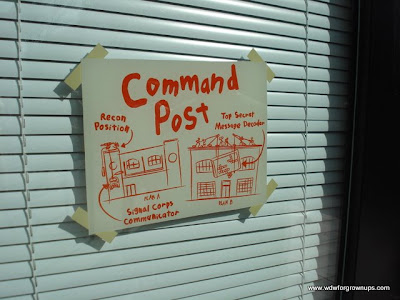 Command
Post
Recon
Position
Top Secret
Message Decoder
PLAN A
PLAN B
Signal Corps
Communicator
www.wdwforgrownups.com